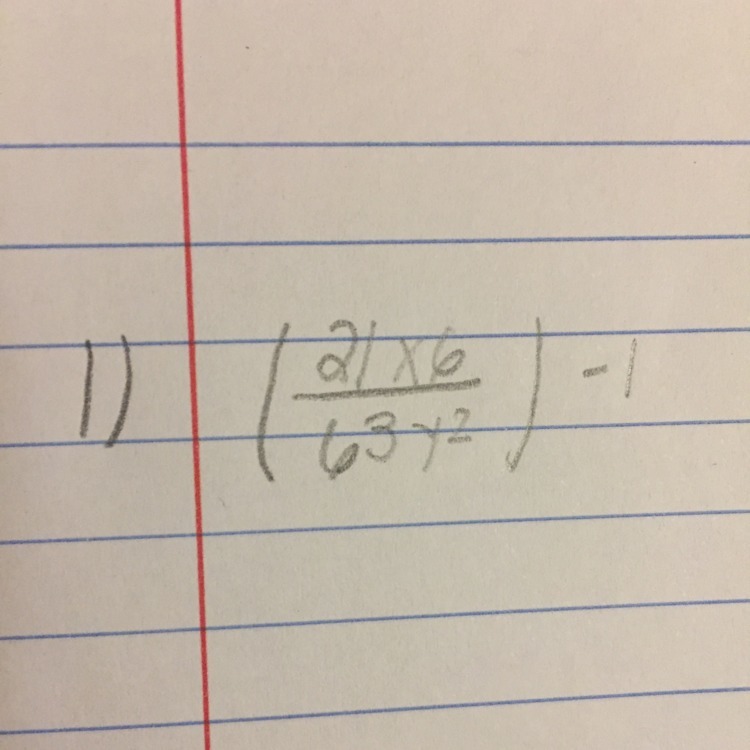 1) (21x6/63y²) -1